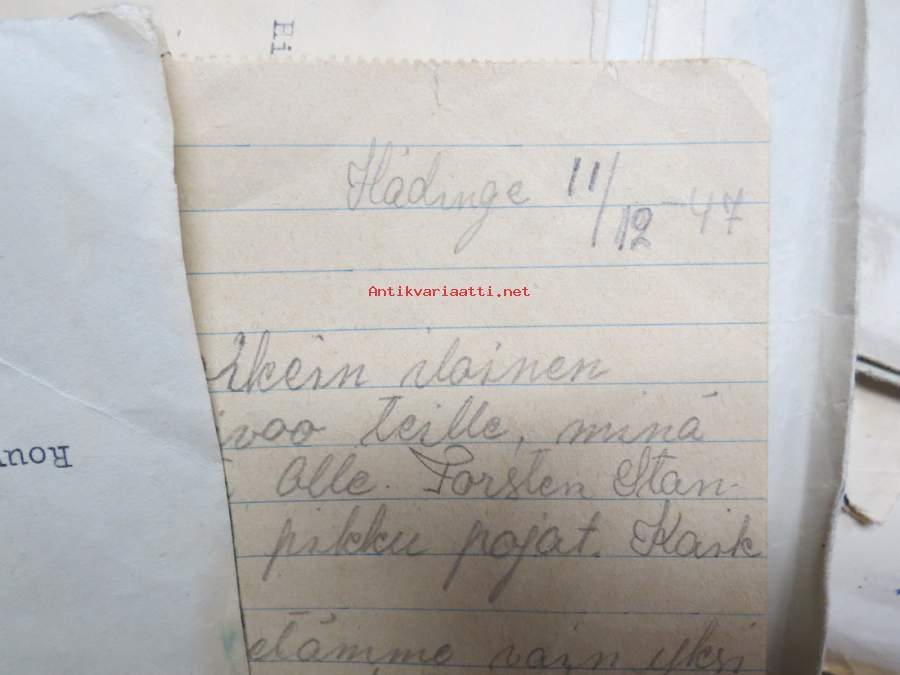 Ei
Hådinge 11/12-47
Antikvariaatti.net
ikein iloinen
ivoo teille, minä
Olle. Torsten Stan-
pikku pojat. Kaik
etämme vain yksi
Rou